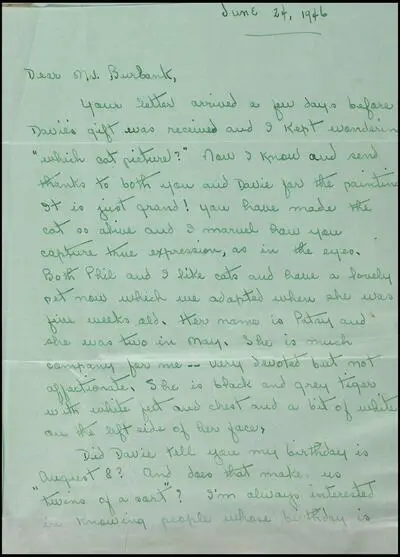 June 24, 1946
Dear M.J. Burbank,
Your letter arrived a few days before
Davie's gift was received and I kept wonderin
"which cat picture?" Now I know and send
thanks to both you and Davie for the paintin
It is just grand! You have made the
cat so alive and I marvel how you
capture true expression, as in the eyes.
Both Phil and I like cats and have a lovely
pet now which we adopted when she was
five weeks old. Her name is Patsy and
she was two in May. She is much
company for me -- very devoted but not
affectionate. She is black and grey tiger
with white feet and chest and a bit of white
on the left side of her face.
Did Davie tell you my birthday is
August 8? And does that make us
"twins of a sort"? I'm always interested
in knowing people whose birthday is